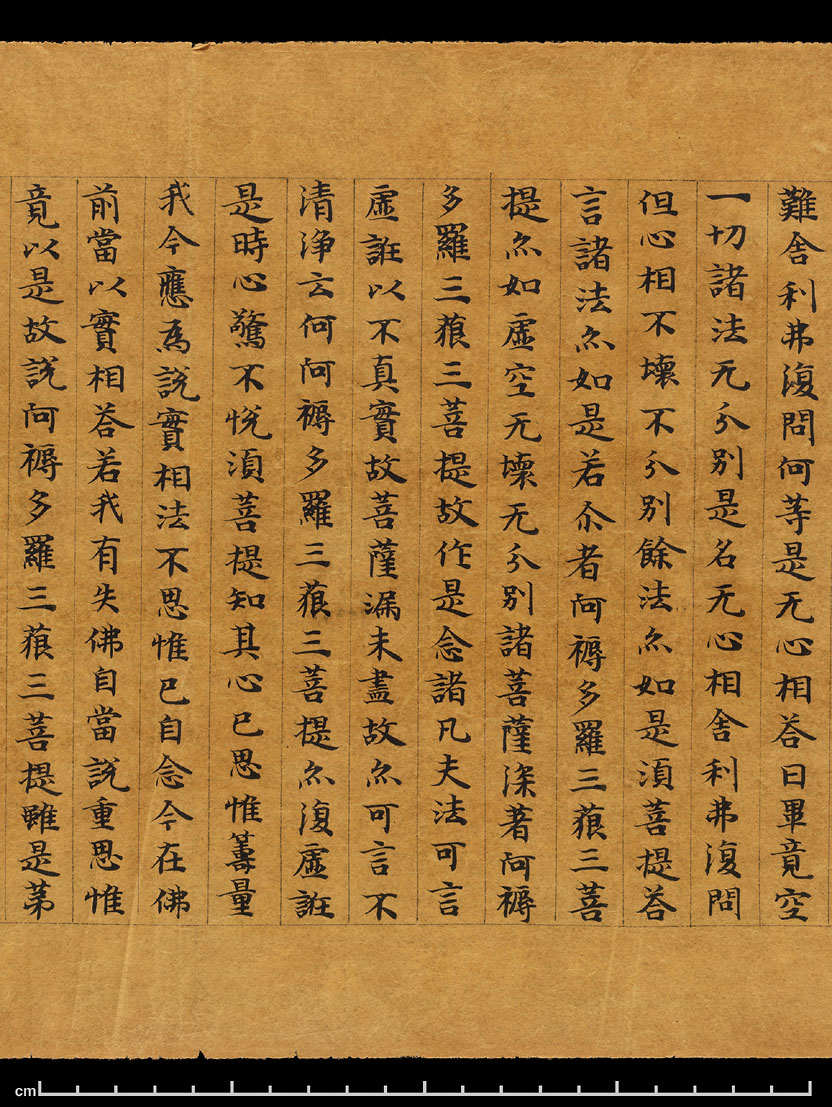 難舍利弗復問何等是无心相荅曰畢竟空
一切諸法无分別是名无心相舍利弗復問
但心相不壞不分別餘法亦如是湏菩提荅
言諸法亦如是若尒者阿耨多羅三藐三菩
提亦如虛空无壞无分別諸菩薩深著阿耨
多羅三藐三菩提故作是念諸凡夫法可言
虛誑以不真實故菩薩漏未盡故亦可言不
清淨云何阿耨多羅三藐三菩提亦復虛誑
是時心驚不悅湏菩提知其心已思惟籌量
我今應為說實相法不思惟已自念今在佛
前當以實相荅若我有失佛自當說重思惟
竟以是故說阿耨多羅三藐三菩提雖是苐
cm